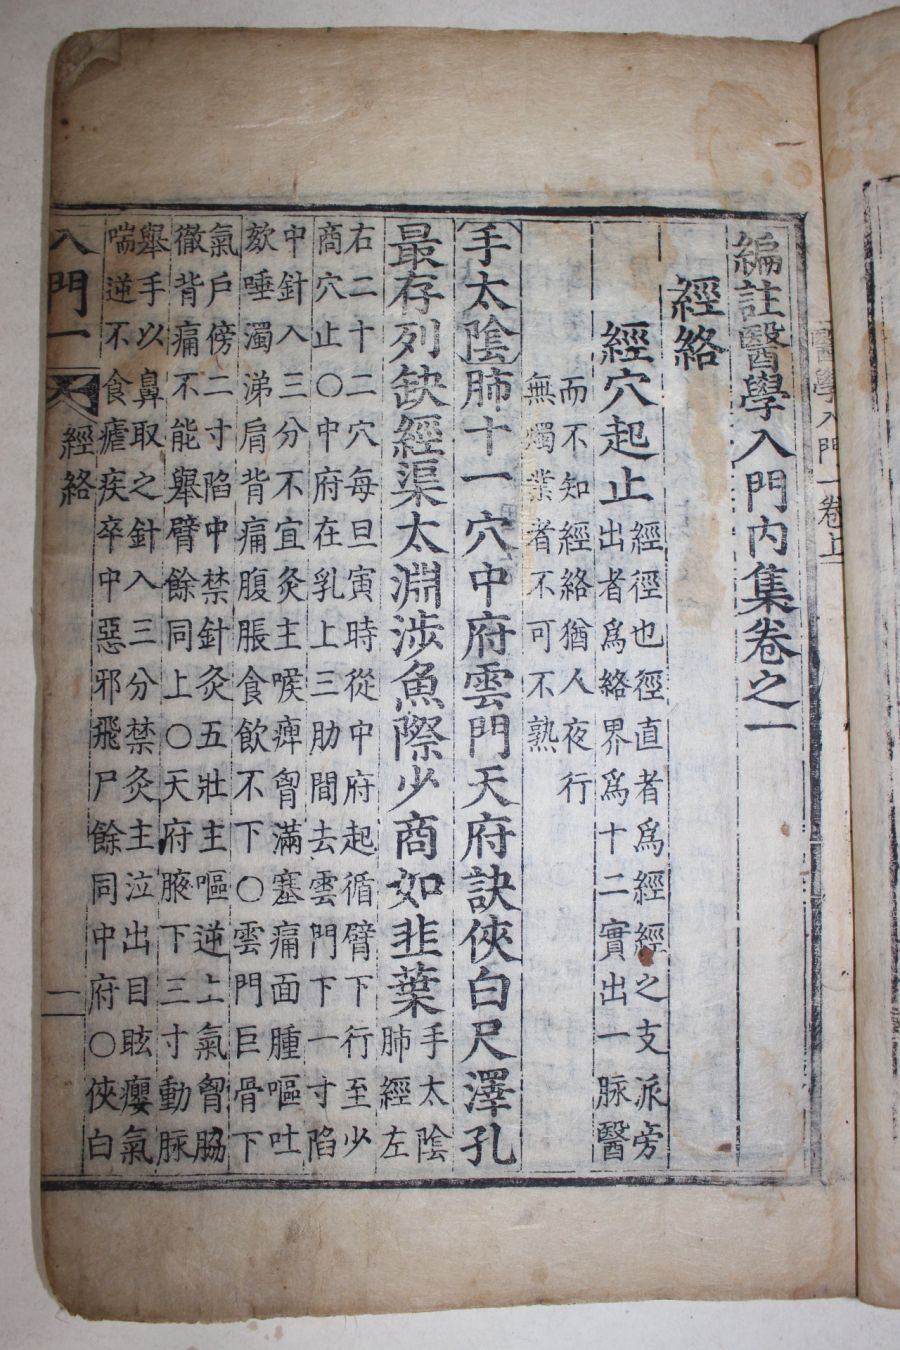 編註醫學入門內集卷之一
經絡
經穴起止
經徑也徑直者爲經經之支派旁
出者爲絡界爲十二實出一脉醫
而不知經絡猶人夜行
無燭業者不可不熟
手太陰肺十一穴中府雲門天府訣俠白尺澤孔
最存列缺經渠太淵涉魚際少商如韭葉
手太陰
肺經左
右二十二穴每旦寅時從中府起循臂下行至少
商穴止○中府在乳上三肋間去雲門下一寸陷
中針入三分不宜灸主喉痺胷滿塞痛面腫嘔吐
欬唾濁涕肩背痛腹脹食飮不下○雲門巨骨下
氣戶傍二寸陷中禁針灸五壯主嘔逆上氣胷脇
徹背痛不能舉臂餘同上○天府腋下三寸動脉
舉手以鼻取之針入三分禁灸主泣出目眩癭氣
喘逆不食瘧疾卒中惡邪飛尸餘同中府○俠白
入門一
經絡
二
醫學入門一卷上